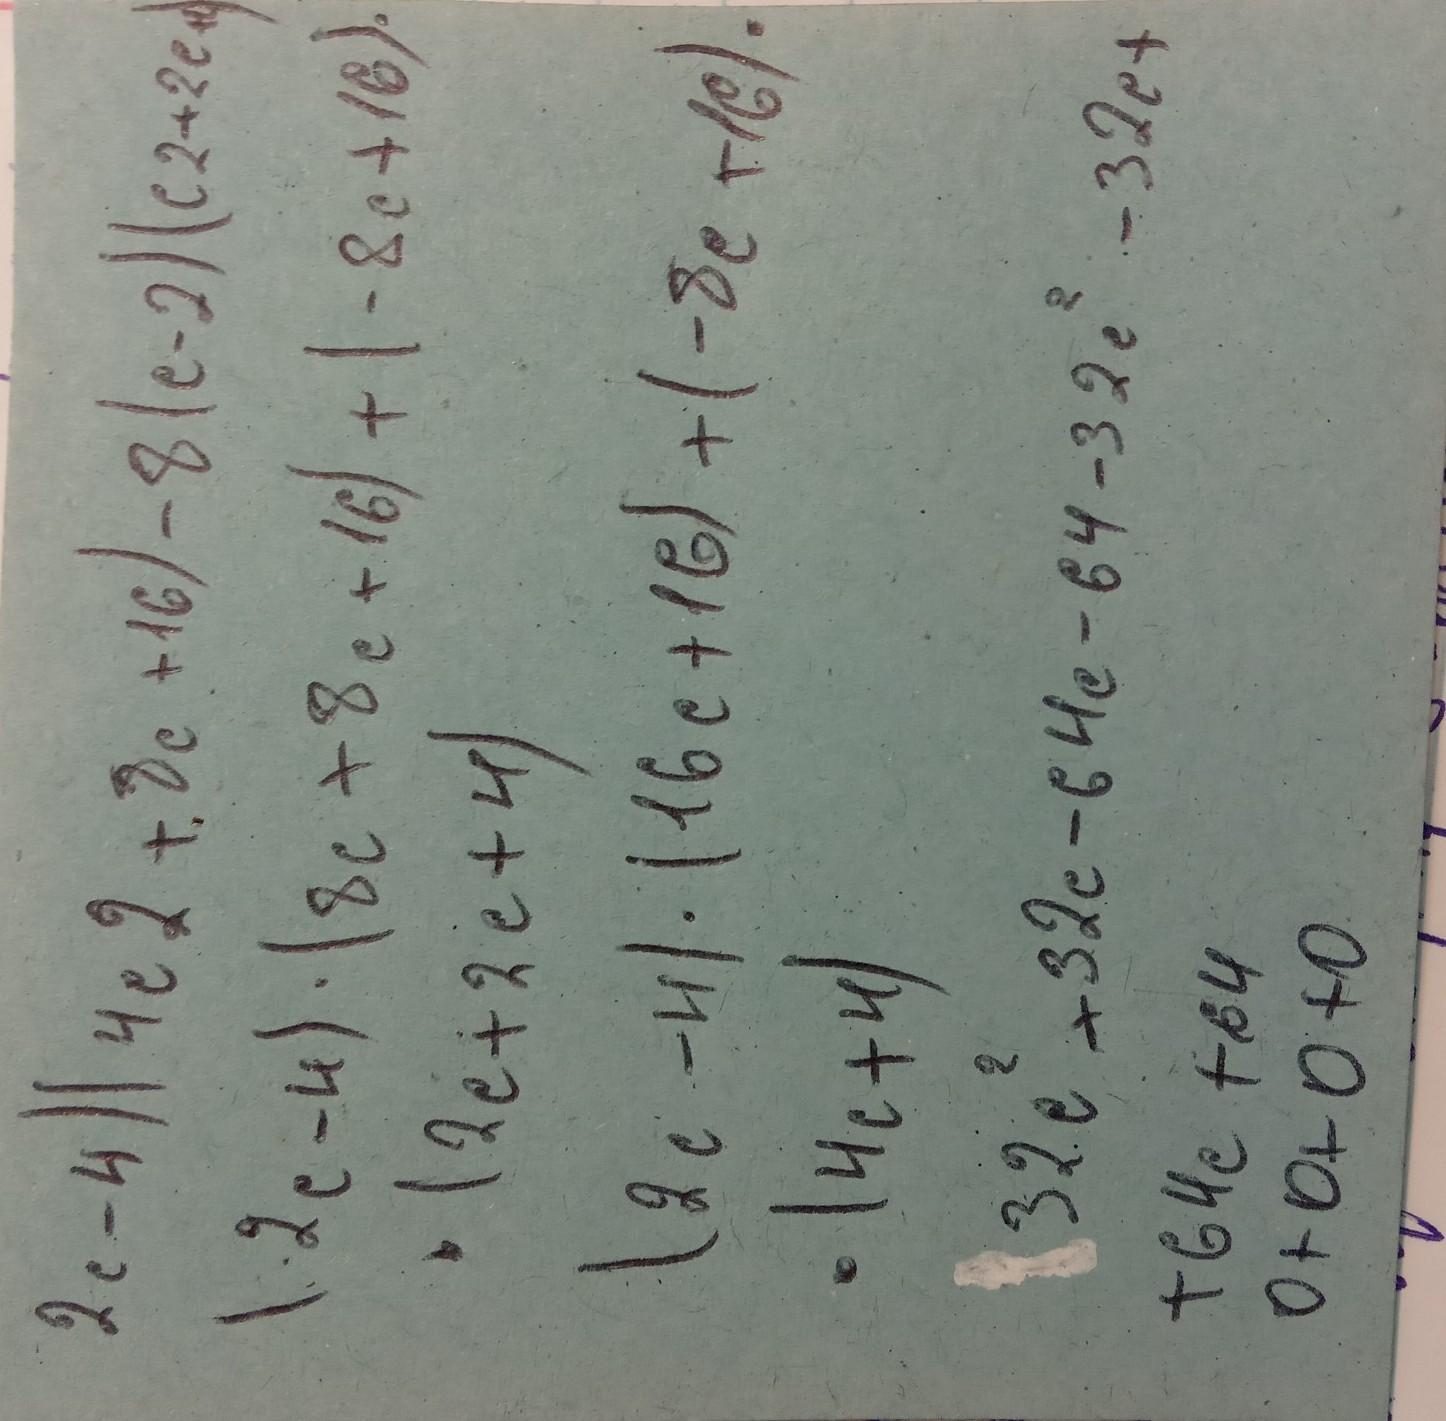 2c-4)(4c2+8c+16)-8(c-2)(c2+2c+4)
(2c-4)·(8c+8c+16)+(-8c+16)·
·(2c+2c+4)
(2c-4)·(16c+16)+(-8c+16)·
·(4c+4)
32c²+32c-64c-64-32c²-32c+
+64c+64
0+0+0+0